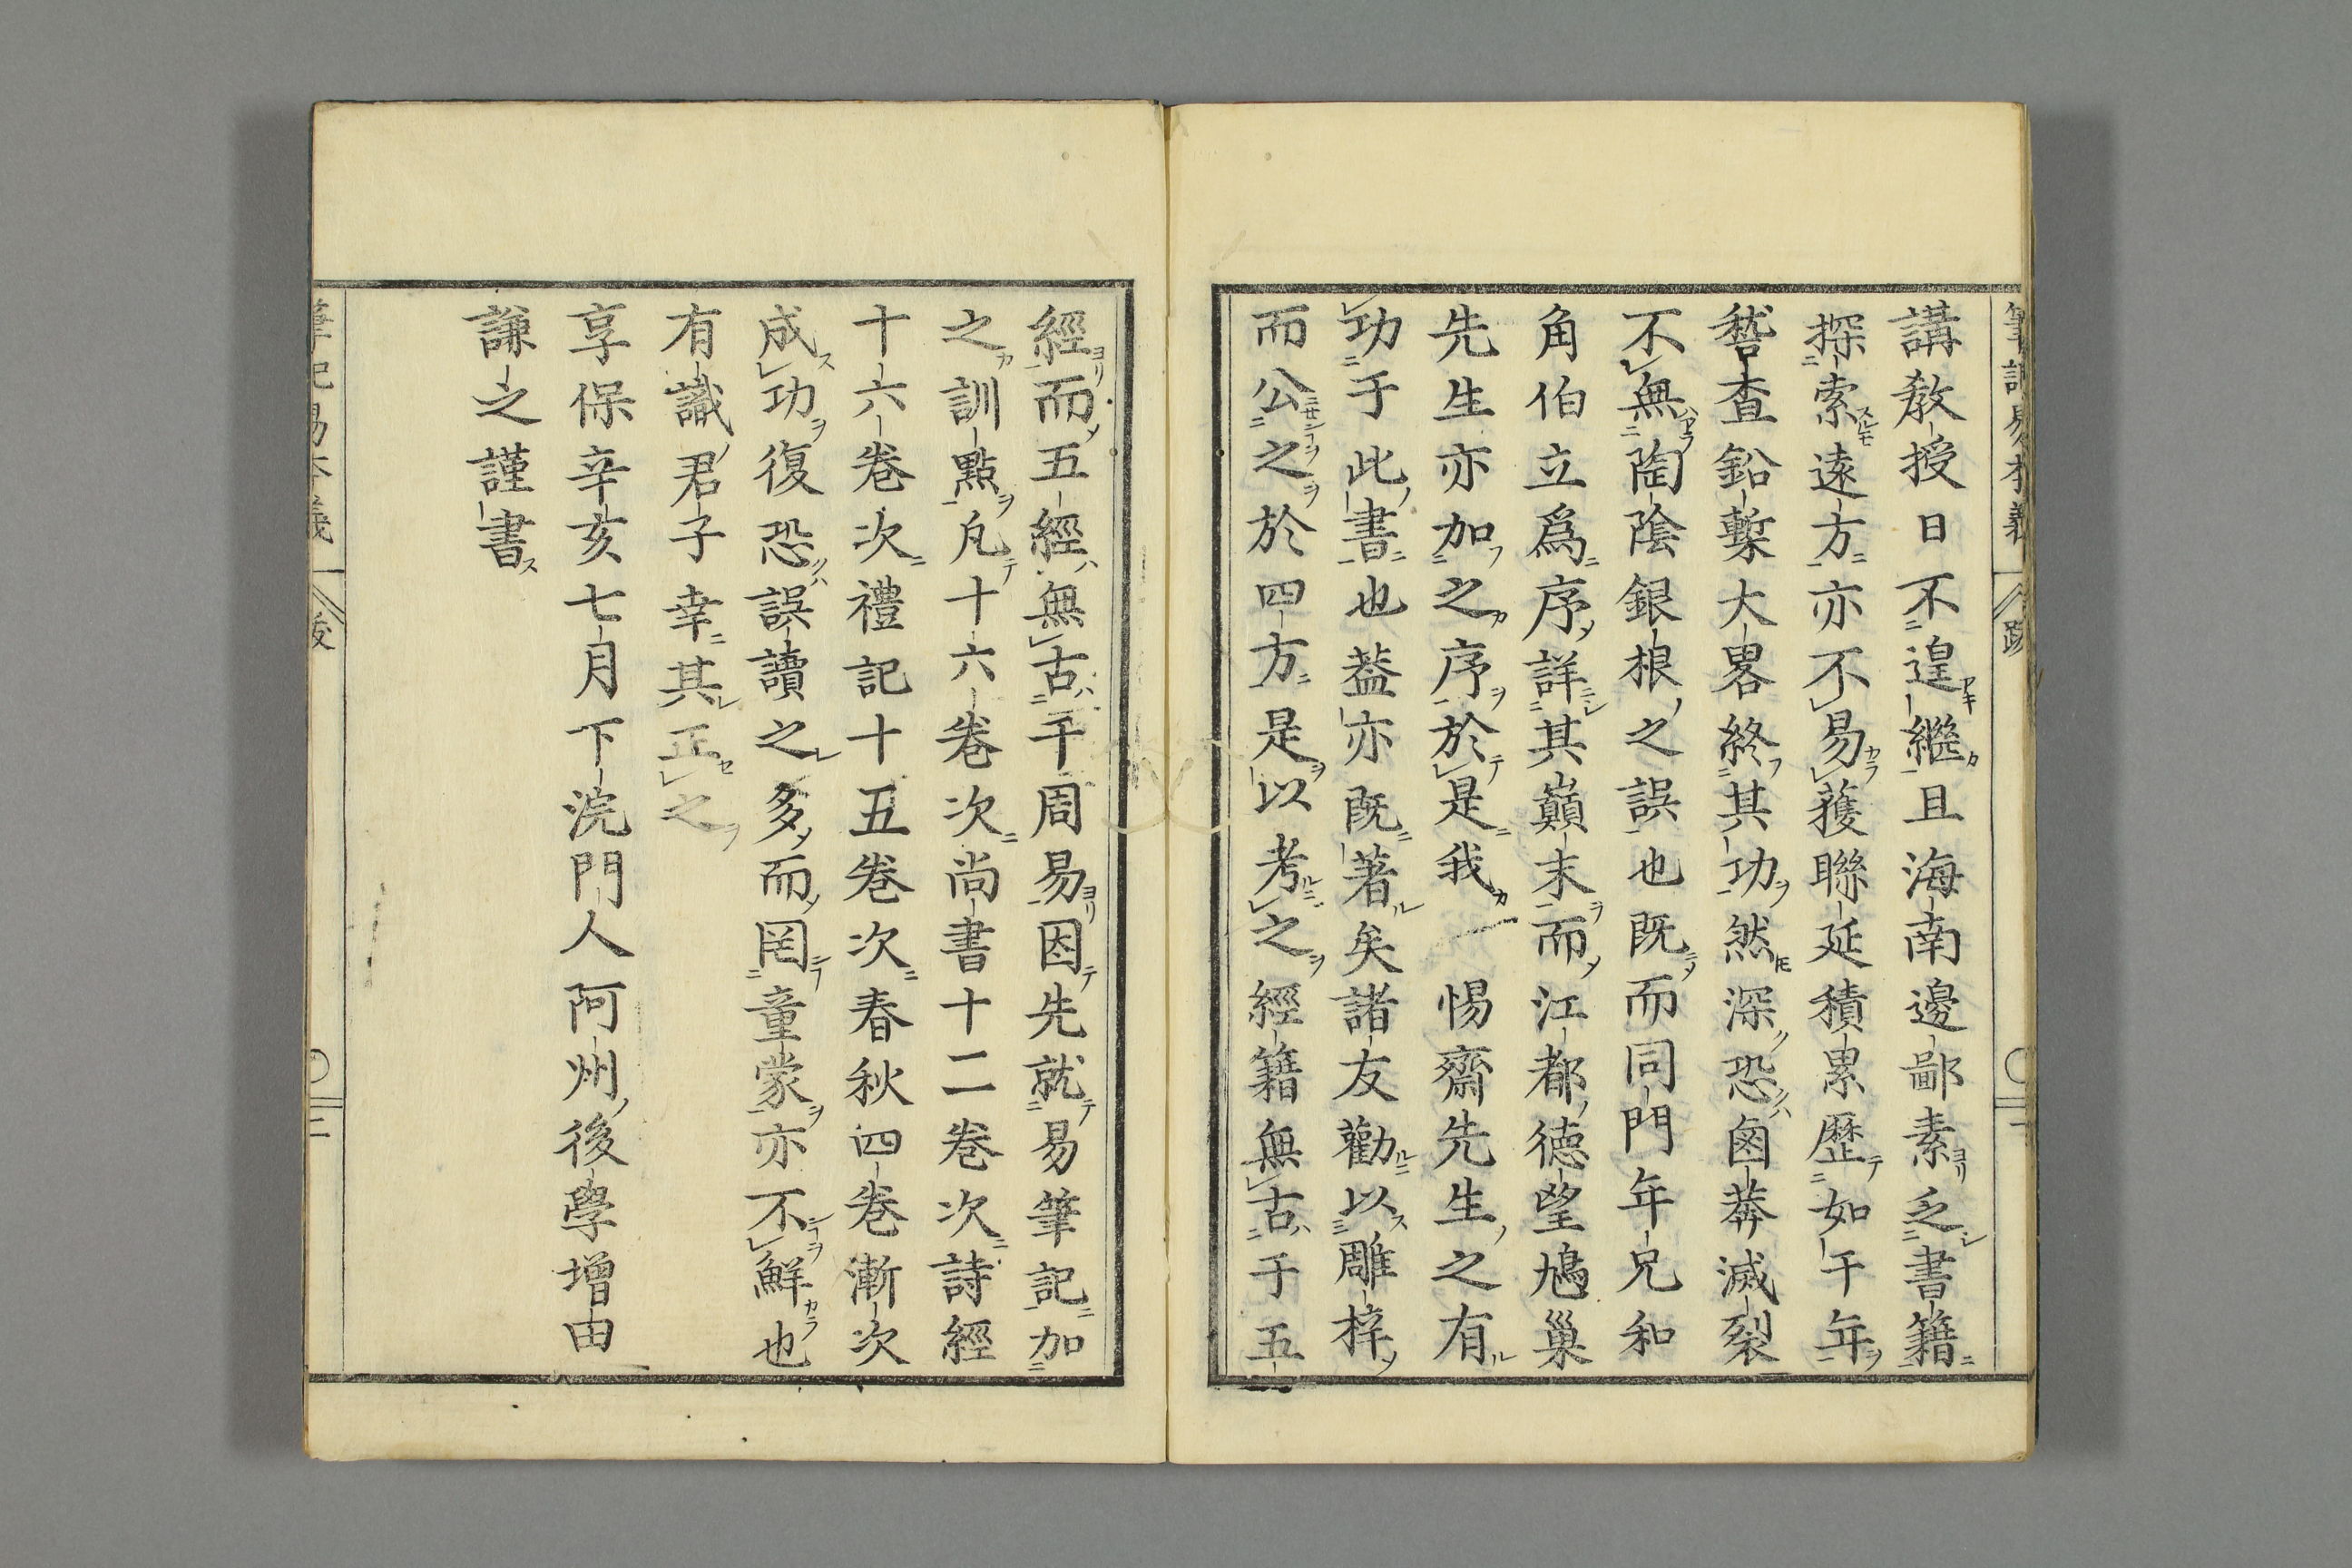 講教授日不遑繼且海南邊鄙素乏書籍
探索遠方亦不易獲聯延積累歷如干年
嵆查鉛槧大畧終其功然深恐鹵莽滅裂
不無陶陰銀根之誤也既而同門年兄和
角伯立爲序詳其巓末而江都德望鳩巢
先生亦加之序於是我 惕齋先生之有
功于此書也葢亦既著矣諸友勸以雕梓
而公之於四方是以考之經籍無古于五
經而五經無古于周易因先就易筆記加
之訓點凡十六卷次尚書十二卷次詩經
十六卷次禮記十五卷次春秋四卷漸次
成功復恐誤讀之多而罔童蒙亦不鮮也
有識君子幸其正之
享保辛亥七月下浣門人阿州後學增田
謙之謹書